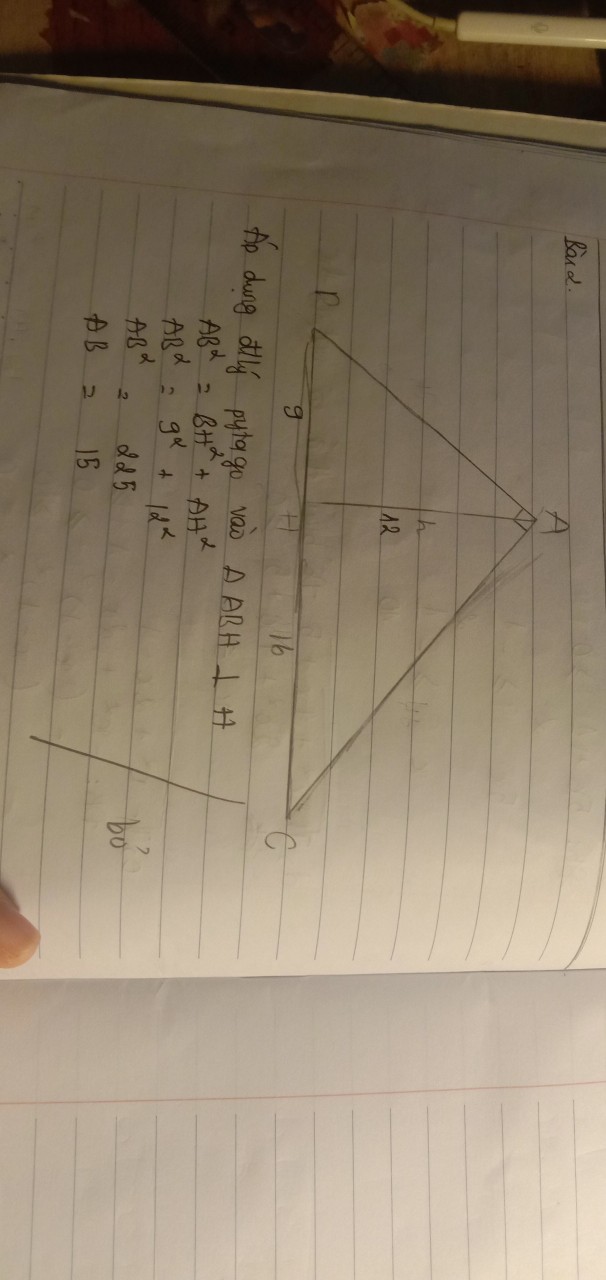 Bài 2.
A
h
12
B
9
H
16
C
Áp dụng đlý pytago vào Δ ABH ⊥ H
AB² = BH² + AH²
AB² = 9² + 12²
AB² = 225
AB = 15
bỏ